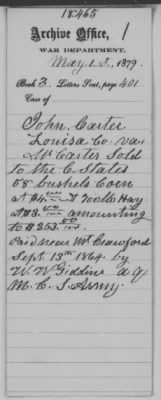 18465
Archive Office, 1
WAR DEPARTMENT,
May 1st, 1879.
Book 3. Letters Sent, page 401
Case of
John. Carter
Louisa Co. Va.
Mr Carter Sold
to the C. States
58 bushels Corn
at $4. 00/100 & 700 lb Hay.
at $3. 00/100 amounting
to $253. 00/100
Paid near Mt Crawford
Sept. 13th 1864 by
W. W Giddins a qr
M. C. S. Army.